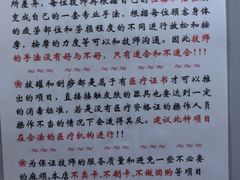 所差异，每位技师再根据自己的手法演
变成自己的一套专业手法，根据每位顾客身体
的疲劳部位和劳损程度的不同进行放松和按
摩，按摩的力度等可以和技师沟通。因此技师
的手法没有好与不好，只有适合和不适合!!!
拔罐和刮痧都是属于有医疗证书才可以推
出的项目，直接接触皮肤的器具也要达到一定
的消毒标准，若是没有医疗资格证的操作人员
操作不当的情况下会适得其反。建议此种项目
在合法的医疗机构进行!!!
为保证技师的服务质量和避免一些不必要
的麻烦，本店不卖卡，不刷卡，不做团购等项目